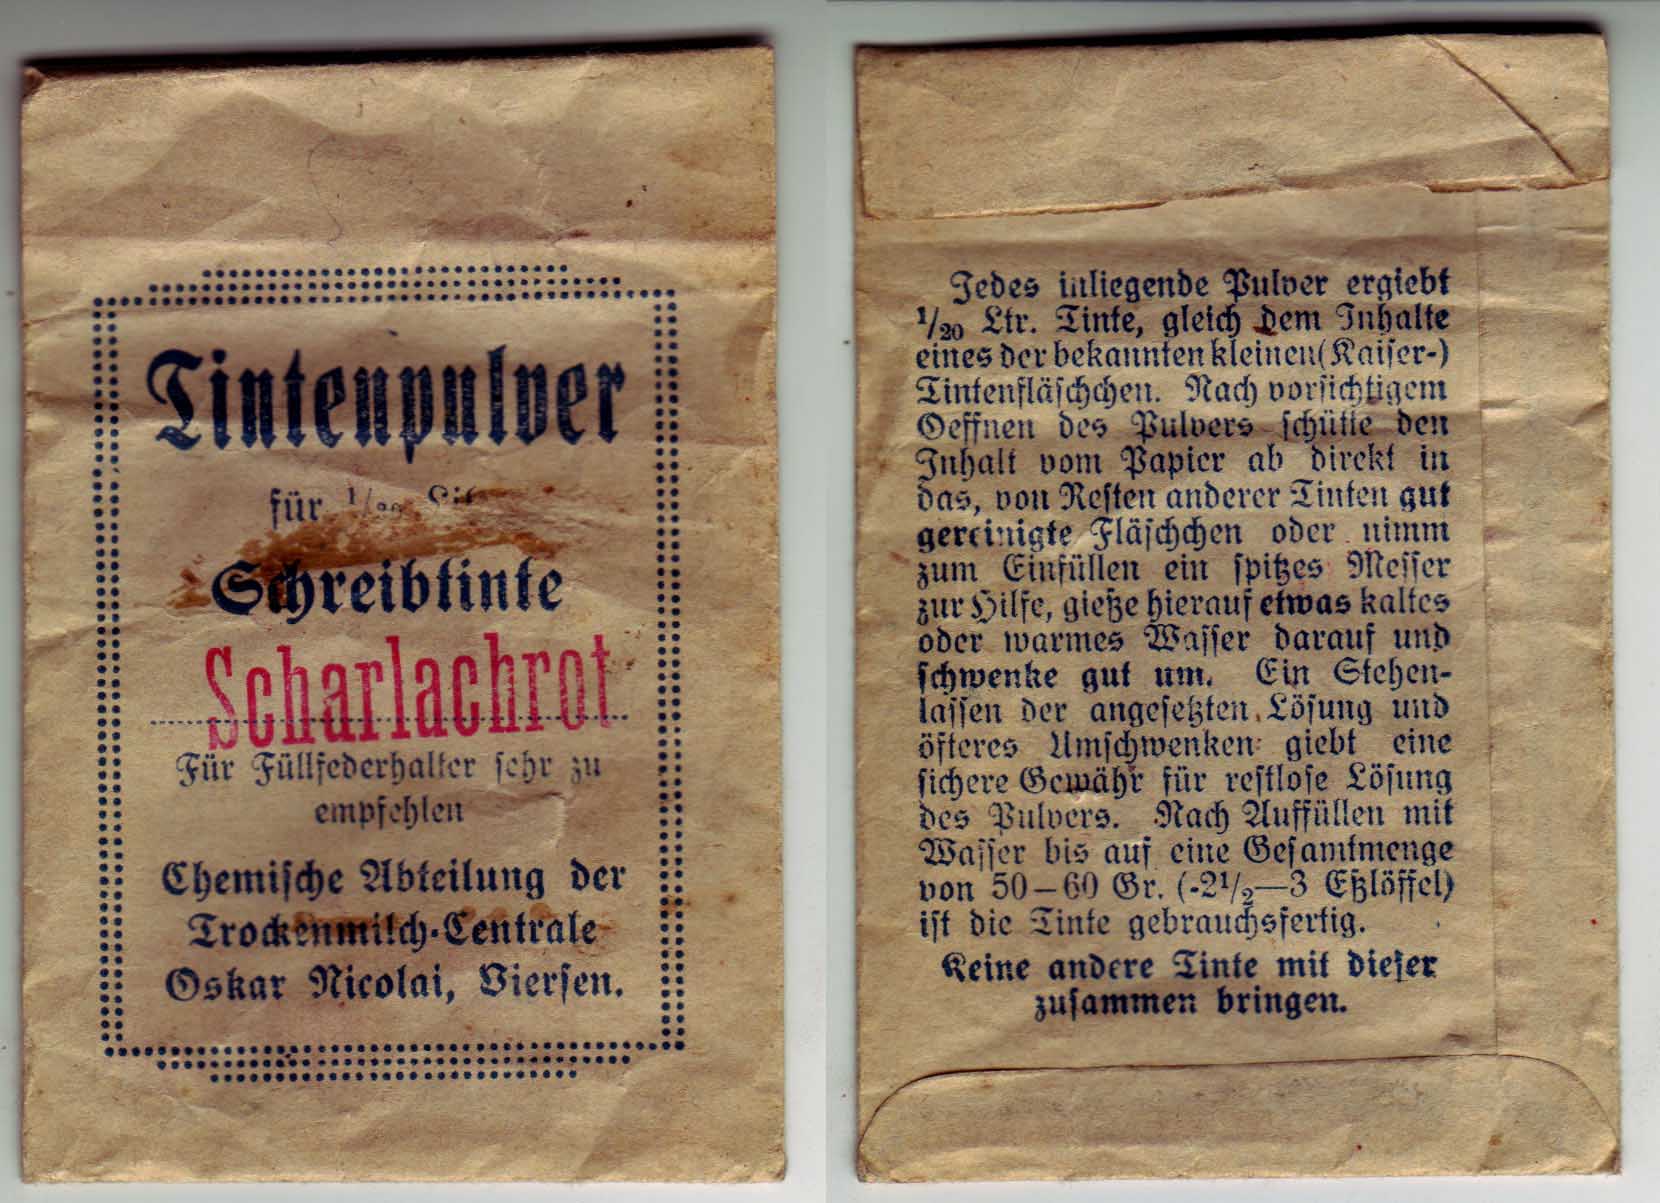 Tintenpulver
für 1/20
Schreibtinte
Scharlachrot
Für Füllfederhalter sehr zu
empfehlen
Chemische Abteilung der
Trockenmilch-Centrale
Oskar Nicolai, Viersen.
Jedes inliegende Pulver ergiebt
1/20 Ltr. Tinte, gleich dem Inhalte
eines der bekannten kleinen (Kaiser-)
Tintenfläschchen. Nach vorsichtigem
Oeffnen des Pulvers schütte den
Inhalt vom Papier ab direkt in
das, von Resten anderer Tinten gut
gereinigte Fläschchen oder nimm
zum Einfüllen ein spitzes Messer
zur Hilfe, gieße hierauf etwas kaltes
oder warmes Wasser darauf und
schwenke gut um. Ein Stehen-
lassen der angesetzten Lösung und
öfteres Umschwenken giebt eine
sichere Gewähr für restlose Lösung
des Pulvers. Nach Auffüllen mit
Wasser bis auf eine Gesamtmenge
von 50–60 Gr. (-2 1/2—3 Eßlöffel)
ist die Tinte gebrauchsfertig.
Keine andere Tinte mit dieser
zusammen bringen.